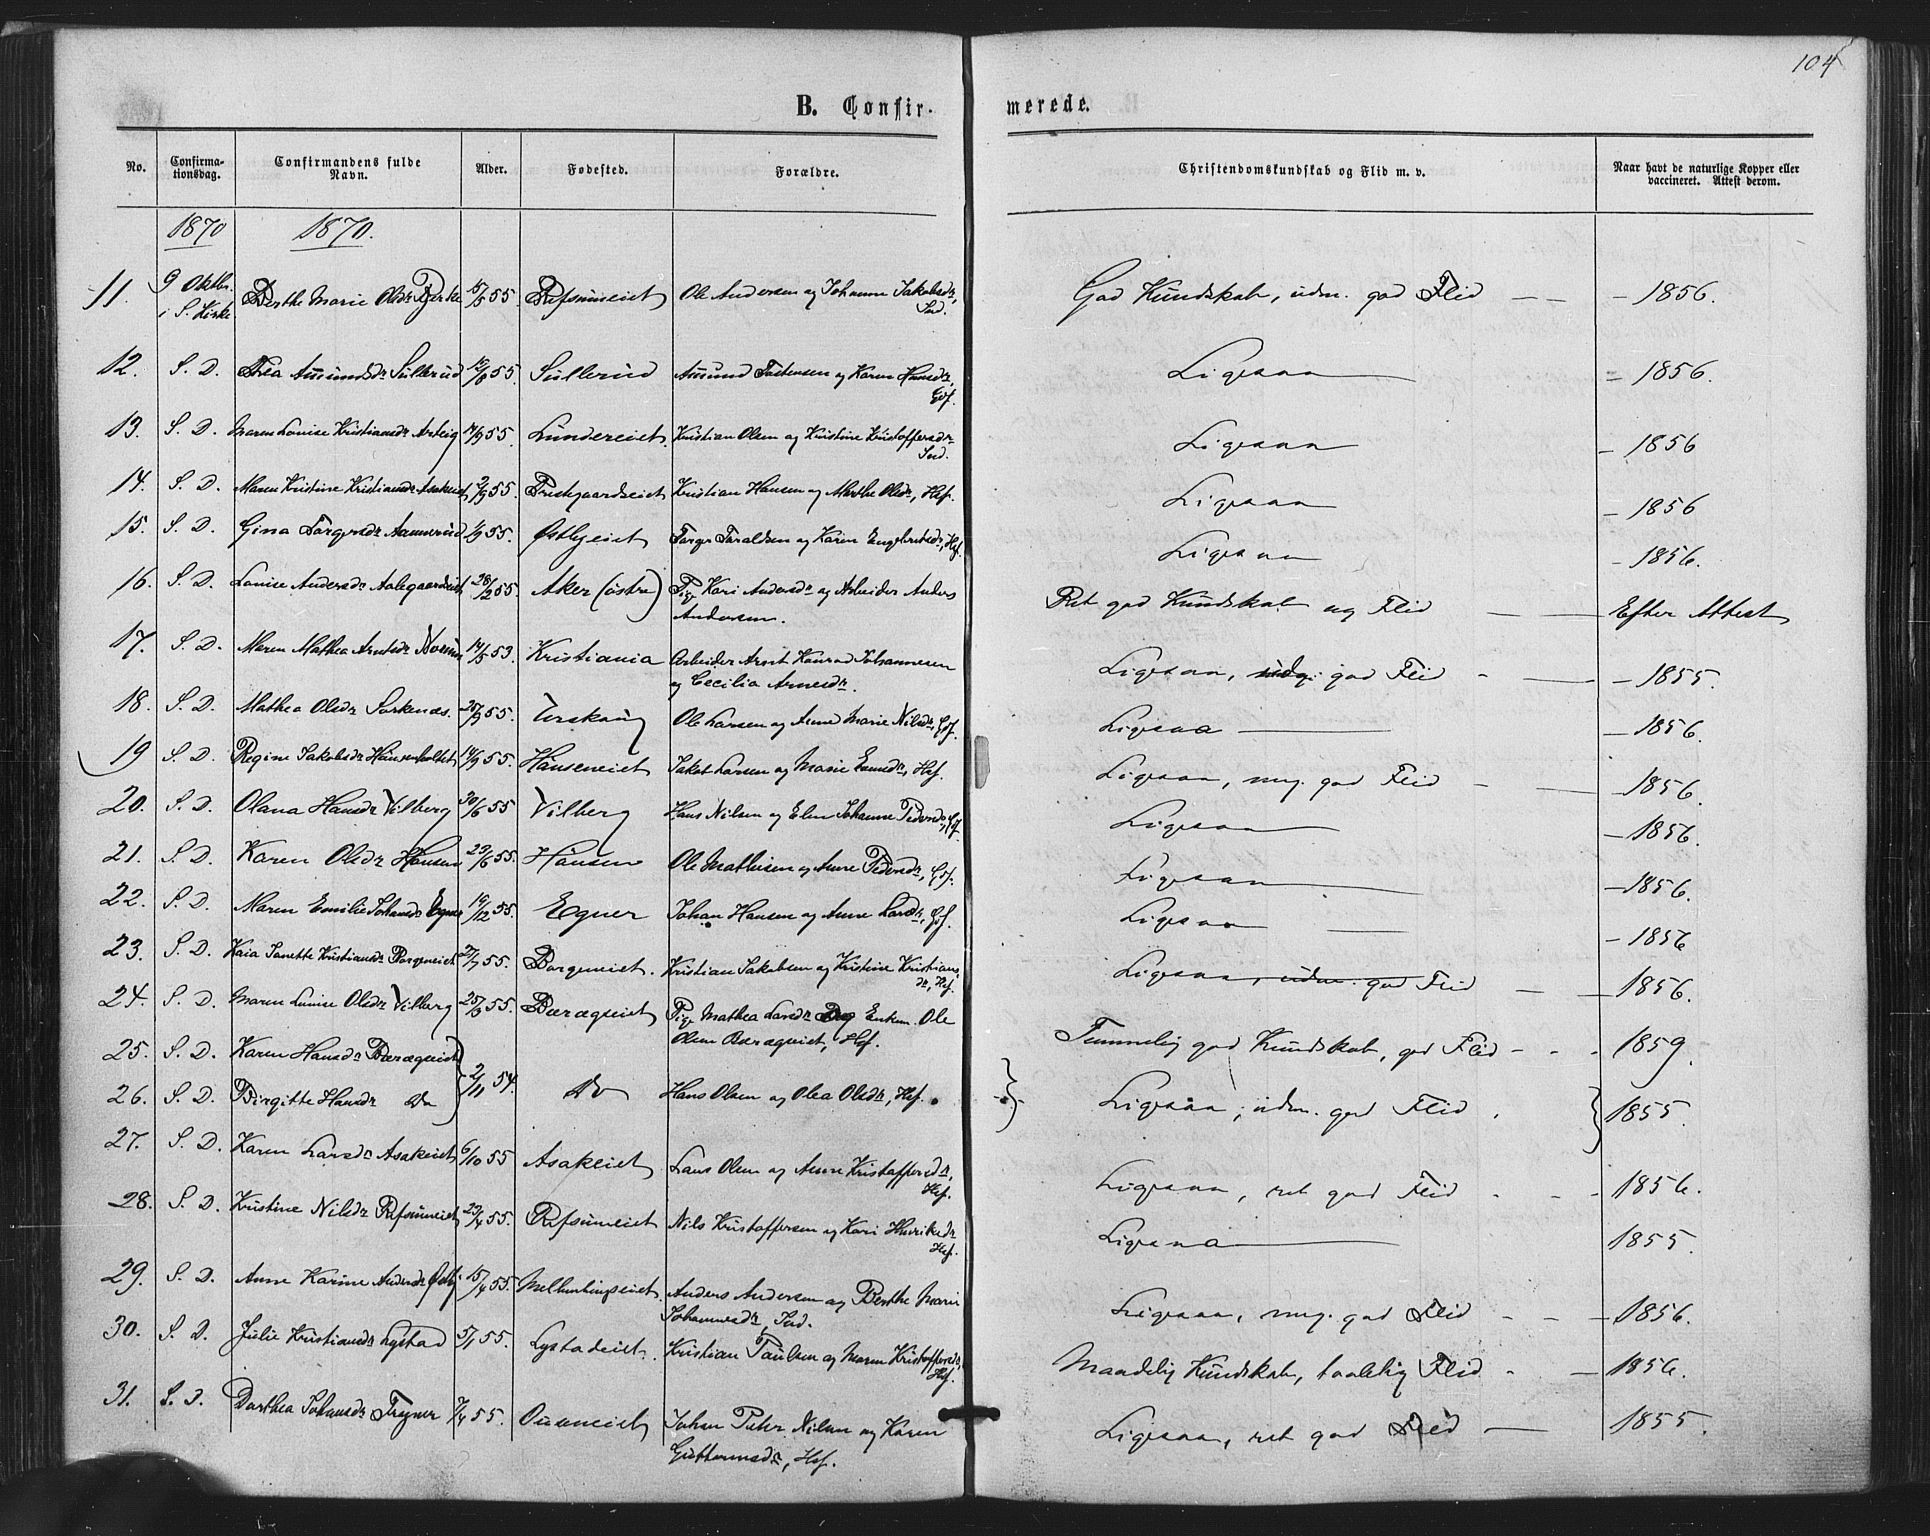 104
B. Confir-
merede.
No. Confirma-tionsdag. Confirmandens fulde Navn. Alder. Fødested. Forældre. Christendomskundskab og Flid m. v. Naar havt de naturlige Kopper eller vaccineret. Attest derom.
1870 1870.
11. 9 Oktbr. i S. Kirke Berthe Marie Olsdr Bjerke 5/5 55 Refsumeiet Ole Andersen og Johanne Jakobsdr, Ind. God Kundskab, udm. god Flid – 1856.
12. S. D. Thea Amundsdr Sullerud 55. Sullerud Amund Torstensen og Karen Hansdr, Gbf. Ligesaa – 1856.
13. S. D. Maren Louise Kristiansdr Arteig 55. Lundereiet Kristian Olsen og Kristine Kristoffersdr Ind. Ligesaa – 1856
14. S. D. Maren Kristine Kristiansdr Asakeiet 2/9 55. Prestgaardseiet Kristian Hansen og Marthe Olsdr, Hsf. Ligesaa – 1856
15. S. D. Gina Torgersdr Aamerud 1/9 55. Østbyeiet Torger Taraldsen og Karen Engebretsdr, Hsf. Ligesaa – 1856.
16. S. D. Louise Andersdr Aalegaardseiet 28/2 55. Aker (østre) Pige Kari Andersdr og Arbeider Anders Andersen. Ret god Kundskab og Flid Efter Attest
17. S. D. Maren Mathea Arntsdr 14/5 53. Kristiania Arbeider Arnt Konrad Johannesen og Cecilia Arnesdr. Ligesaa, god Flid – 1855.
18. S. D. Mathea Olsdr Sorknæs. 25/9 55. Urskoug Ole Larsen og Anne Marie Nilsdr, Gbf. Ligesaa – 1856.
19 S. D. Regine Jakobsdr Hauserholtet 14/9 55. Hauseneiet Jakob Larsen og Marie Evensdr, Hsf. Ligesaa, mg. god Flid – 1856.
20. S. D. Olava Hansdr Vilberg 30/6 55 Vilberg Hans Nilsen og Elen Johanne Pedersdr, Gbf. Ligesaa – 1856.
21. S. D. Karen Olsdr Hausen 23/6 55. Hausen Ole Mathisen og Anne Pedersdr, Gbf. Ligesaa – 1856.
22. S. D. Maren Emilie Johansdr Egner 19/12 55. Egner Johan Hansen og Anne Larsdr, Gbf. Ligesaa – 1856
23. S. D. Kaia Janette Kristiansdr Borgeneiet 27/7 55. Borgeneiet. Kristian Jakobsen og Kristine Kristiansdr, Hsf. Ligesaa, udm. god Flid – 1856.
24. S. D. Maren Lovise Olsdr Vilberg 55. Baeraqueiet Pige Mathea Larsdr og Enkem. Ole Olsen Baeraqueiet, Hsf. Temmelig god Kundskab, god Flid – 1859.
25. S. D. Karen Hansdr Baeraqueiet
26. S. D. Birgitte Hansdr Do 2/11 54. Do Hans Olsen og Olea Olsdr, Hsf. Ligesaa, udm. god Flid 1855.
27. S. D. Karen Larsdr Asakeiet 6/10 55 Asakeiet Lars Olsen og Anne Kristoffersdr, Hsf. Ligesaa, ret god Flid – 1856.
28. S. D. Kristine Nilsdr Refsumeiet 23/4 55. Refsumeiet Nils Kristoffersen og Kari Henriksdr Hsf. Ligesaa 1855.
29. S. D. Anne Karine Andersdr Østby 15/4 55. Melbonlingseiet. Anders Andersen og Berthe Marie Johannesdr, Ind. Ligesaa, mg. god Flid – 1856.
30. S. D. Julie Kristiansdr Lystad 5/1 55. Lystadeiet. Kristian Paulsen og Maren Kristoffersdr, Hsf. Maadelig Kundskab, taalelig Flid – 1856.
31. S. D. Dorthea Johansdr Fryner 7/4 55. Ouuneiet Johan Peter Nilsen og Karen Guttormsdr, Hsf. Ligesaa, ret god Flid 1855.